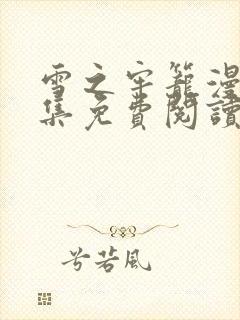 雪之牢籠漫
集免費閱讀
兮若風